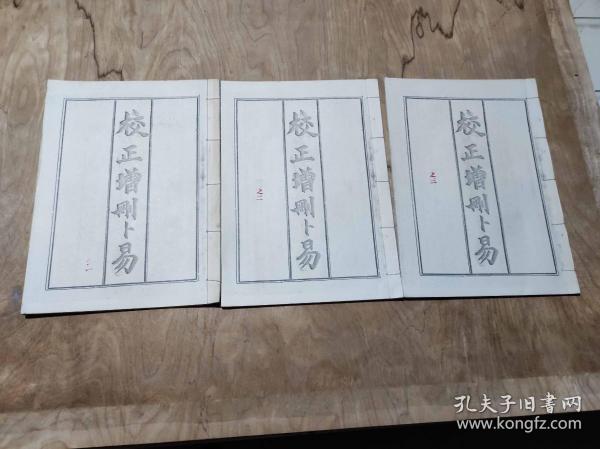 校正增刪卜易
之一
校正增刪卜易
之二
校正增刪卜易
之三
孔夫子旧書网
www.kongfz.com